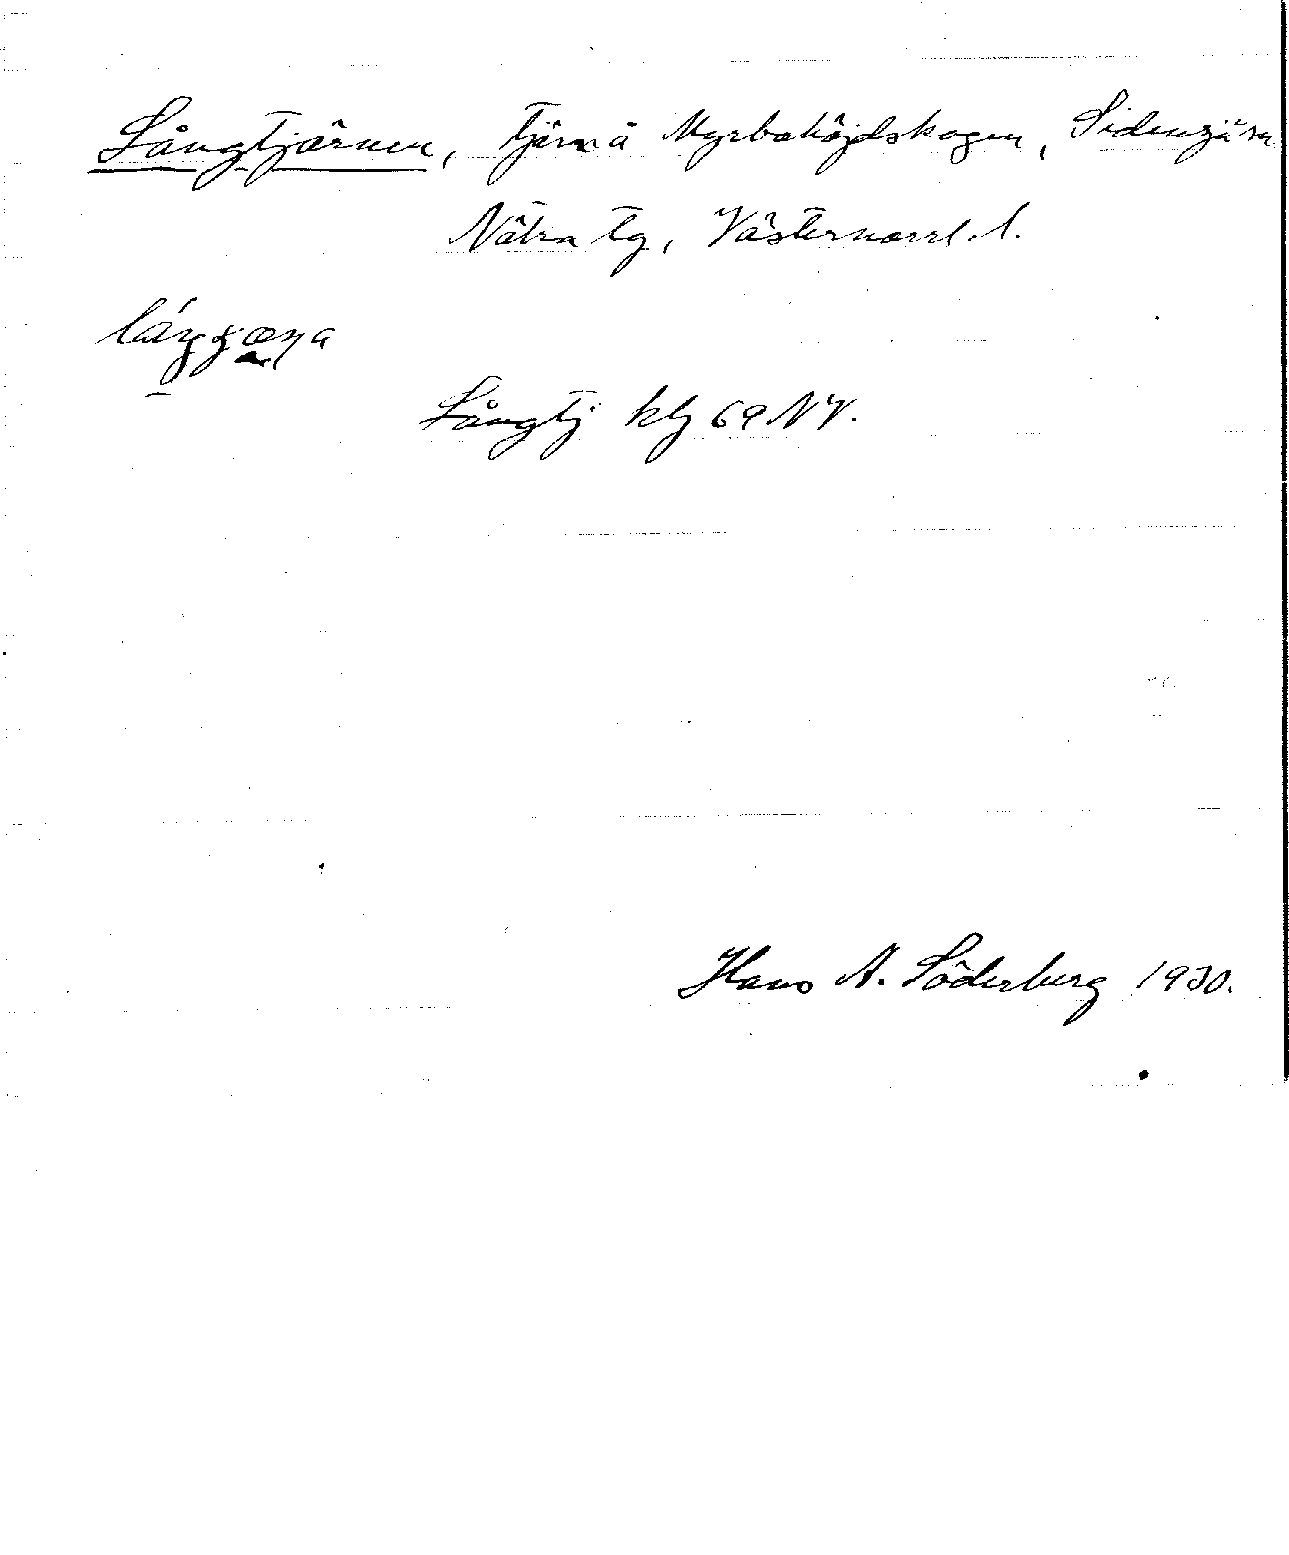 Långtjärnen, Tjärn å Myrbahöjdskogen, Sidensjö sn
Nätra tg, Västernorrl. l.
Långtj ktg 69 NV.
Hans A. Söderberg 1930.